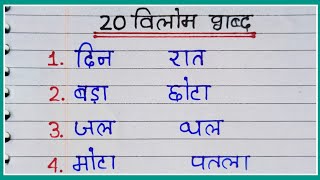 20 विलोम शब्द
1. दिन रात
2. बड़ा छोटा
3. जल थल
4. मोटा पतला